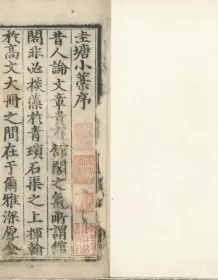 圭塘小藁序
昔人論文章貴有館閣之氣所謂館
閣非必掞藻於青瑣石渠之上揮翰
於高文大冊之間在于爾雅深厚金